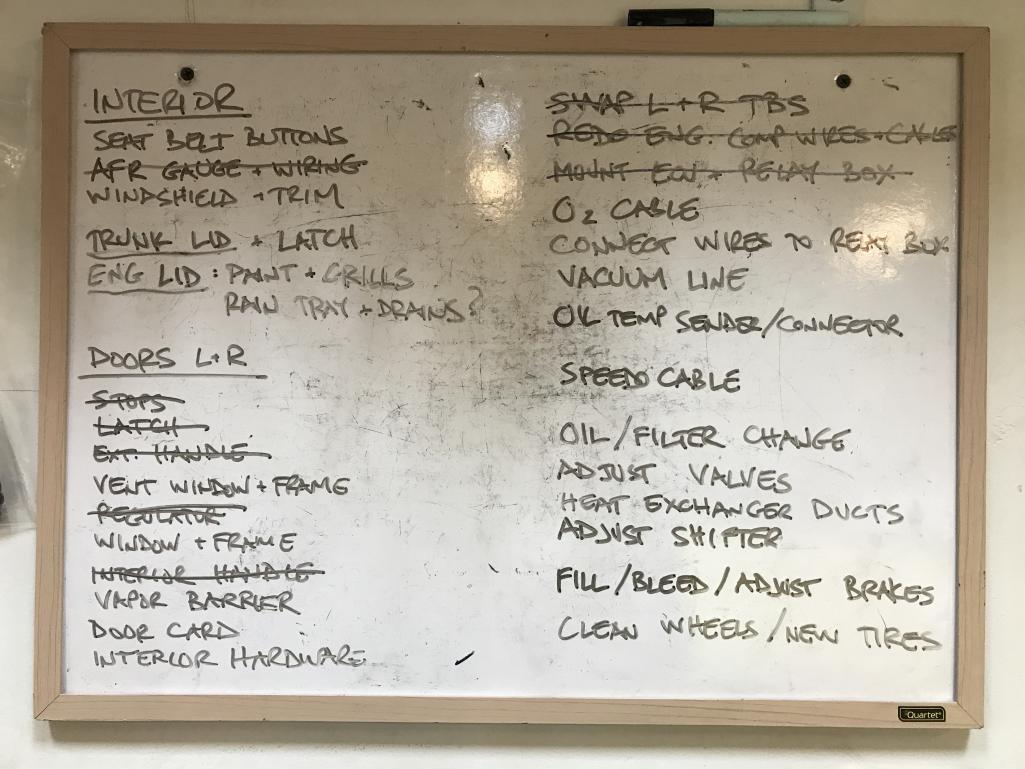 INTERIOR
SEAT BELT BUTTONS
AFR GAUGE + WIRING
WINDSHIELD + TRIM
TRUNK LID + LATCH
ENG LID: PAINT + GRILLS
RAIN TRAY + DRAINS?
DOORS L+R
STOPS
LATCH
EXT. HANDLE
VENT WINDOW + FRAME
REGULATOR
WINDOW + FRAME
INTERIOR HANDLE
VAPOR BARRIER
DOOR CARD
INTERIOR HARDWARE
SWAP L + R TBS
REDO ENG. COMP WIRES + CABLES
MOUNT ECU + RELAY BOX
O2 CABLE
CONNECT WIRES TO REAR BOX
VACUUM LINE
OIL TEMP SENDER/CONNECTOR
SPEEDO CABLE
OIL/FILTER CHANGE
ADJUST VALVES
HEAT EXCHANGER DUCTS
ADJUST SHIFTER
FILL/BLEED/ADJUST BRAKES
CLEAN WHEELS/NEW TIRES
Quartet